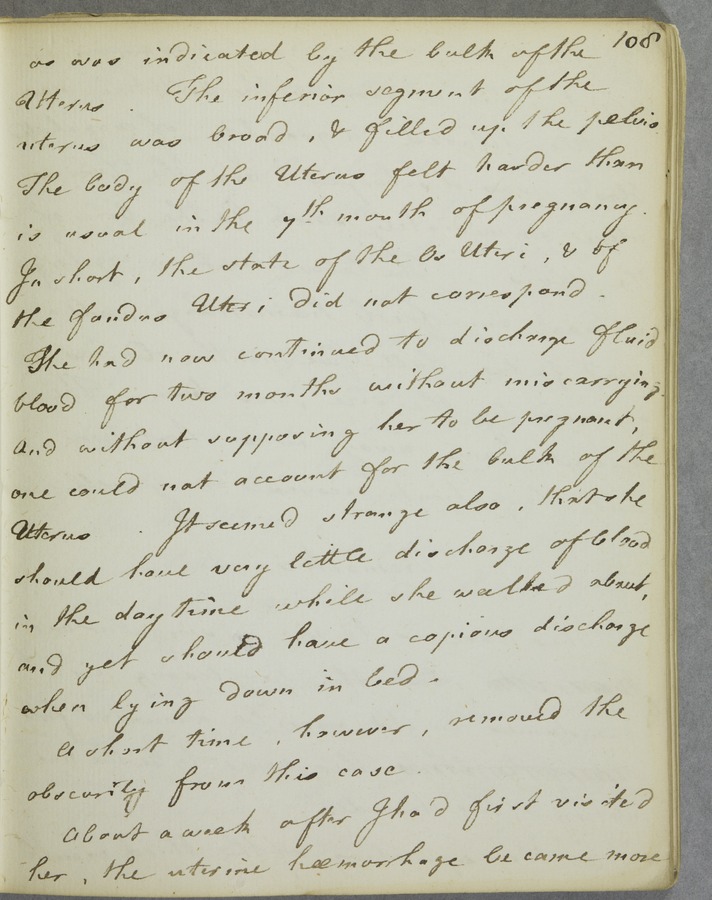 108
as was indicated by the bulk of the
Uterus. The inferior segment of the
uterus was broad, & filled up the pelvis
The body of the Uterus felt harder than
is usual in the 7th month of pregnancy.
In short, the state of the Os Uteri, & of
the fundus Uteri did not correspond.
She had now continued to discharge fluid
blood for two months without miscarrying,
and without supposing her to be pregnant,
one could not account for the bulk of the
Uterus. It seemed strange also, that she
should have very little discharge of blood
in the day time while she walked about,
and yet should have a copious discharge
when lying down in bed.
A short time, however, removed the
obscurity from this case.
About a week after I had first visited
her, the uterine hæmorrhage became more